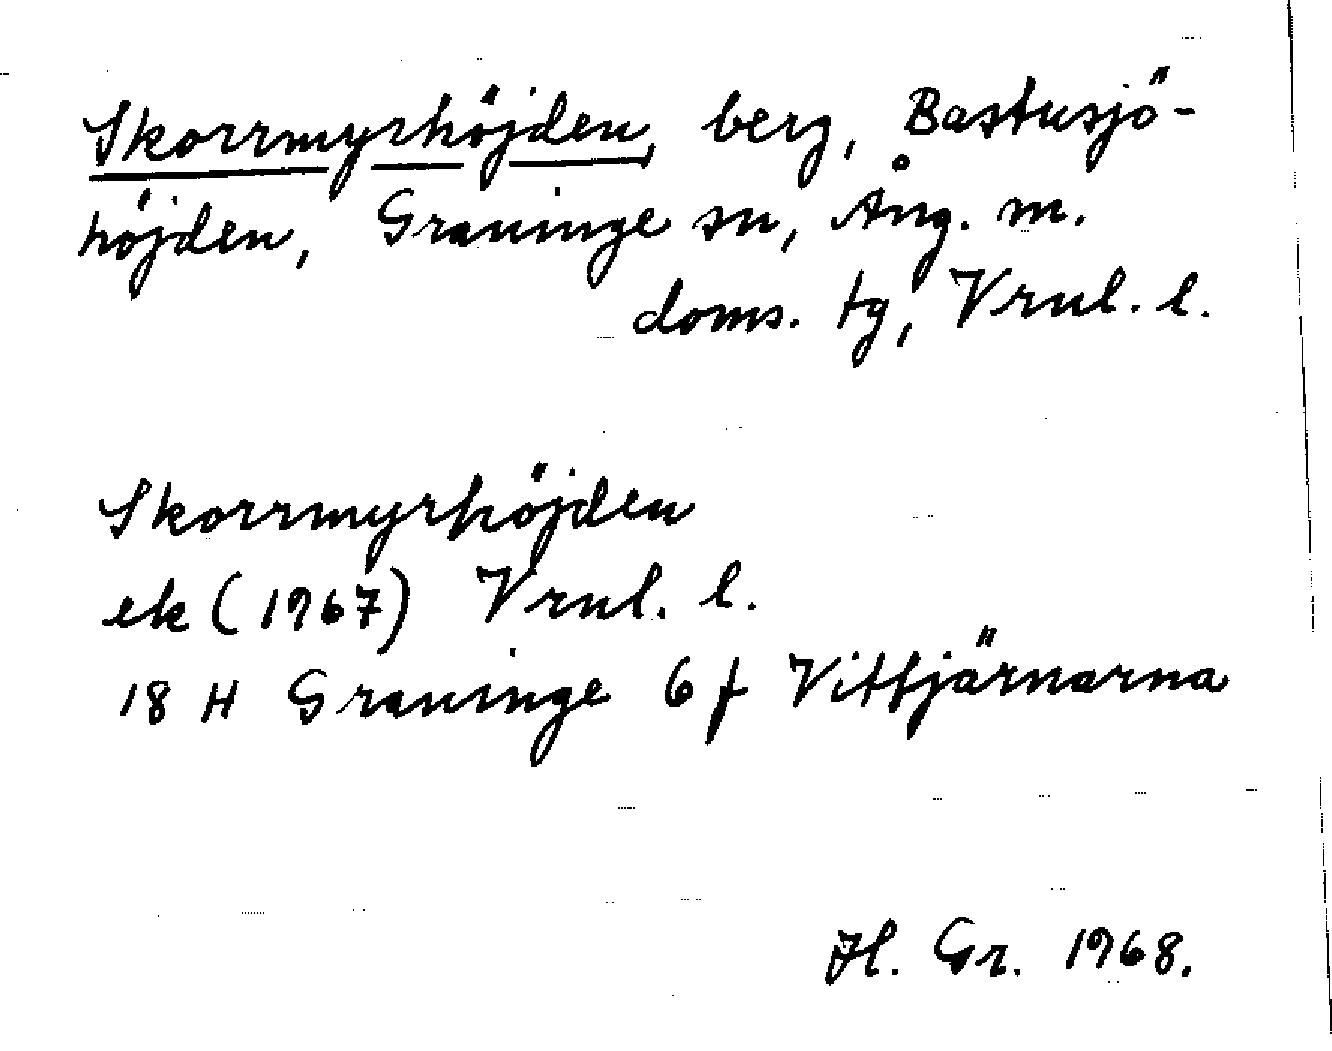 Skorrmyrhöjden, berg, Bastusjö-
höjden, Graninge sn, Ång. m.
doms. tg, Vrnl. l.
Skorrmyrhöjden
ek (1967) Vrnl. l.
18 H Graninge 6 f Vittjärnarna
Hl. Gr. 1968.